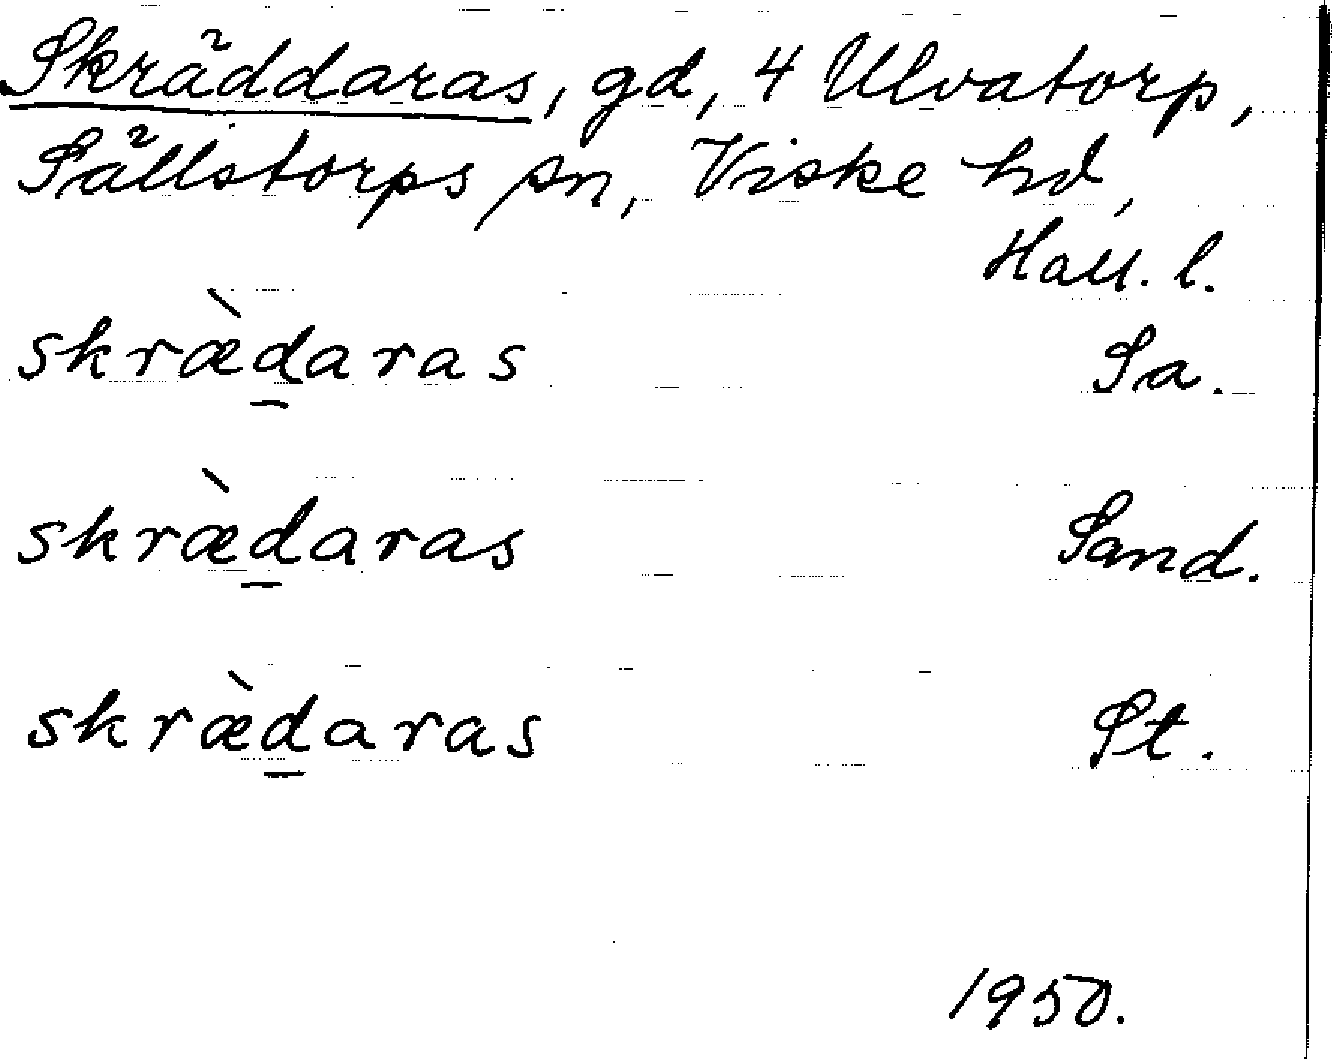 Skräddaras, gd, 4 Ulvatorp,
Sällstorps sn, Viske hd,
Hall. l.
skræ̀d̲aras Sa.
skræ̀d̲aras Sand.
skræ̀d̲aras St.
1950.